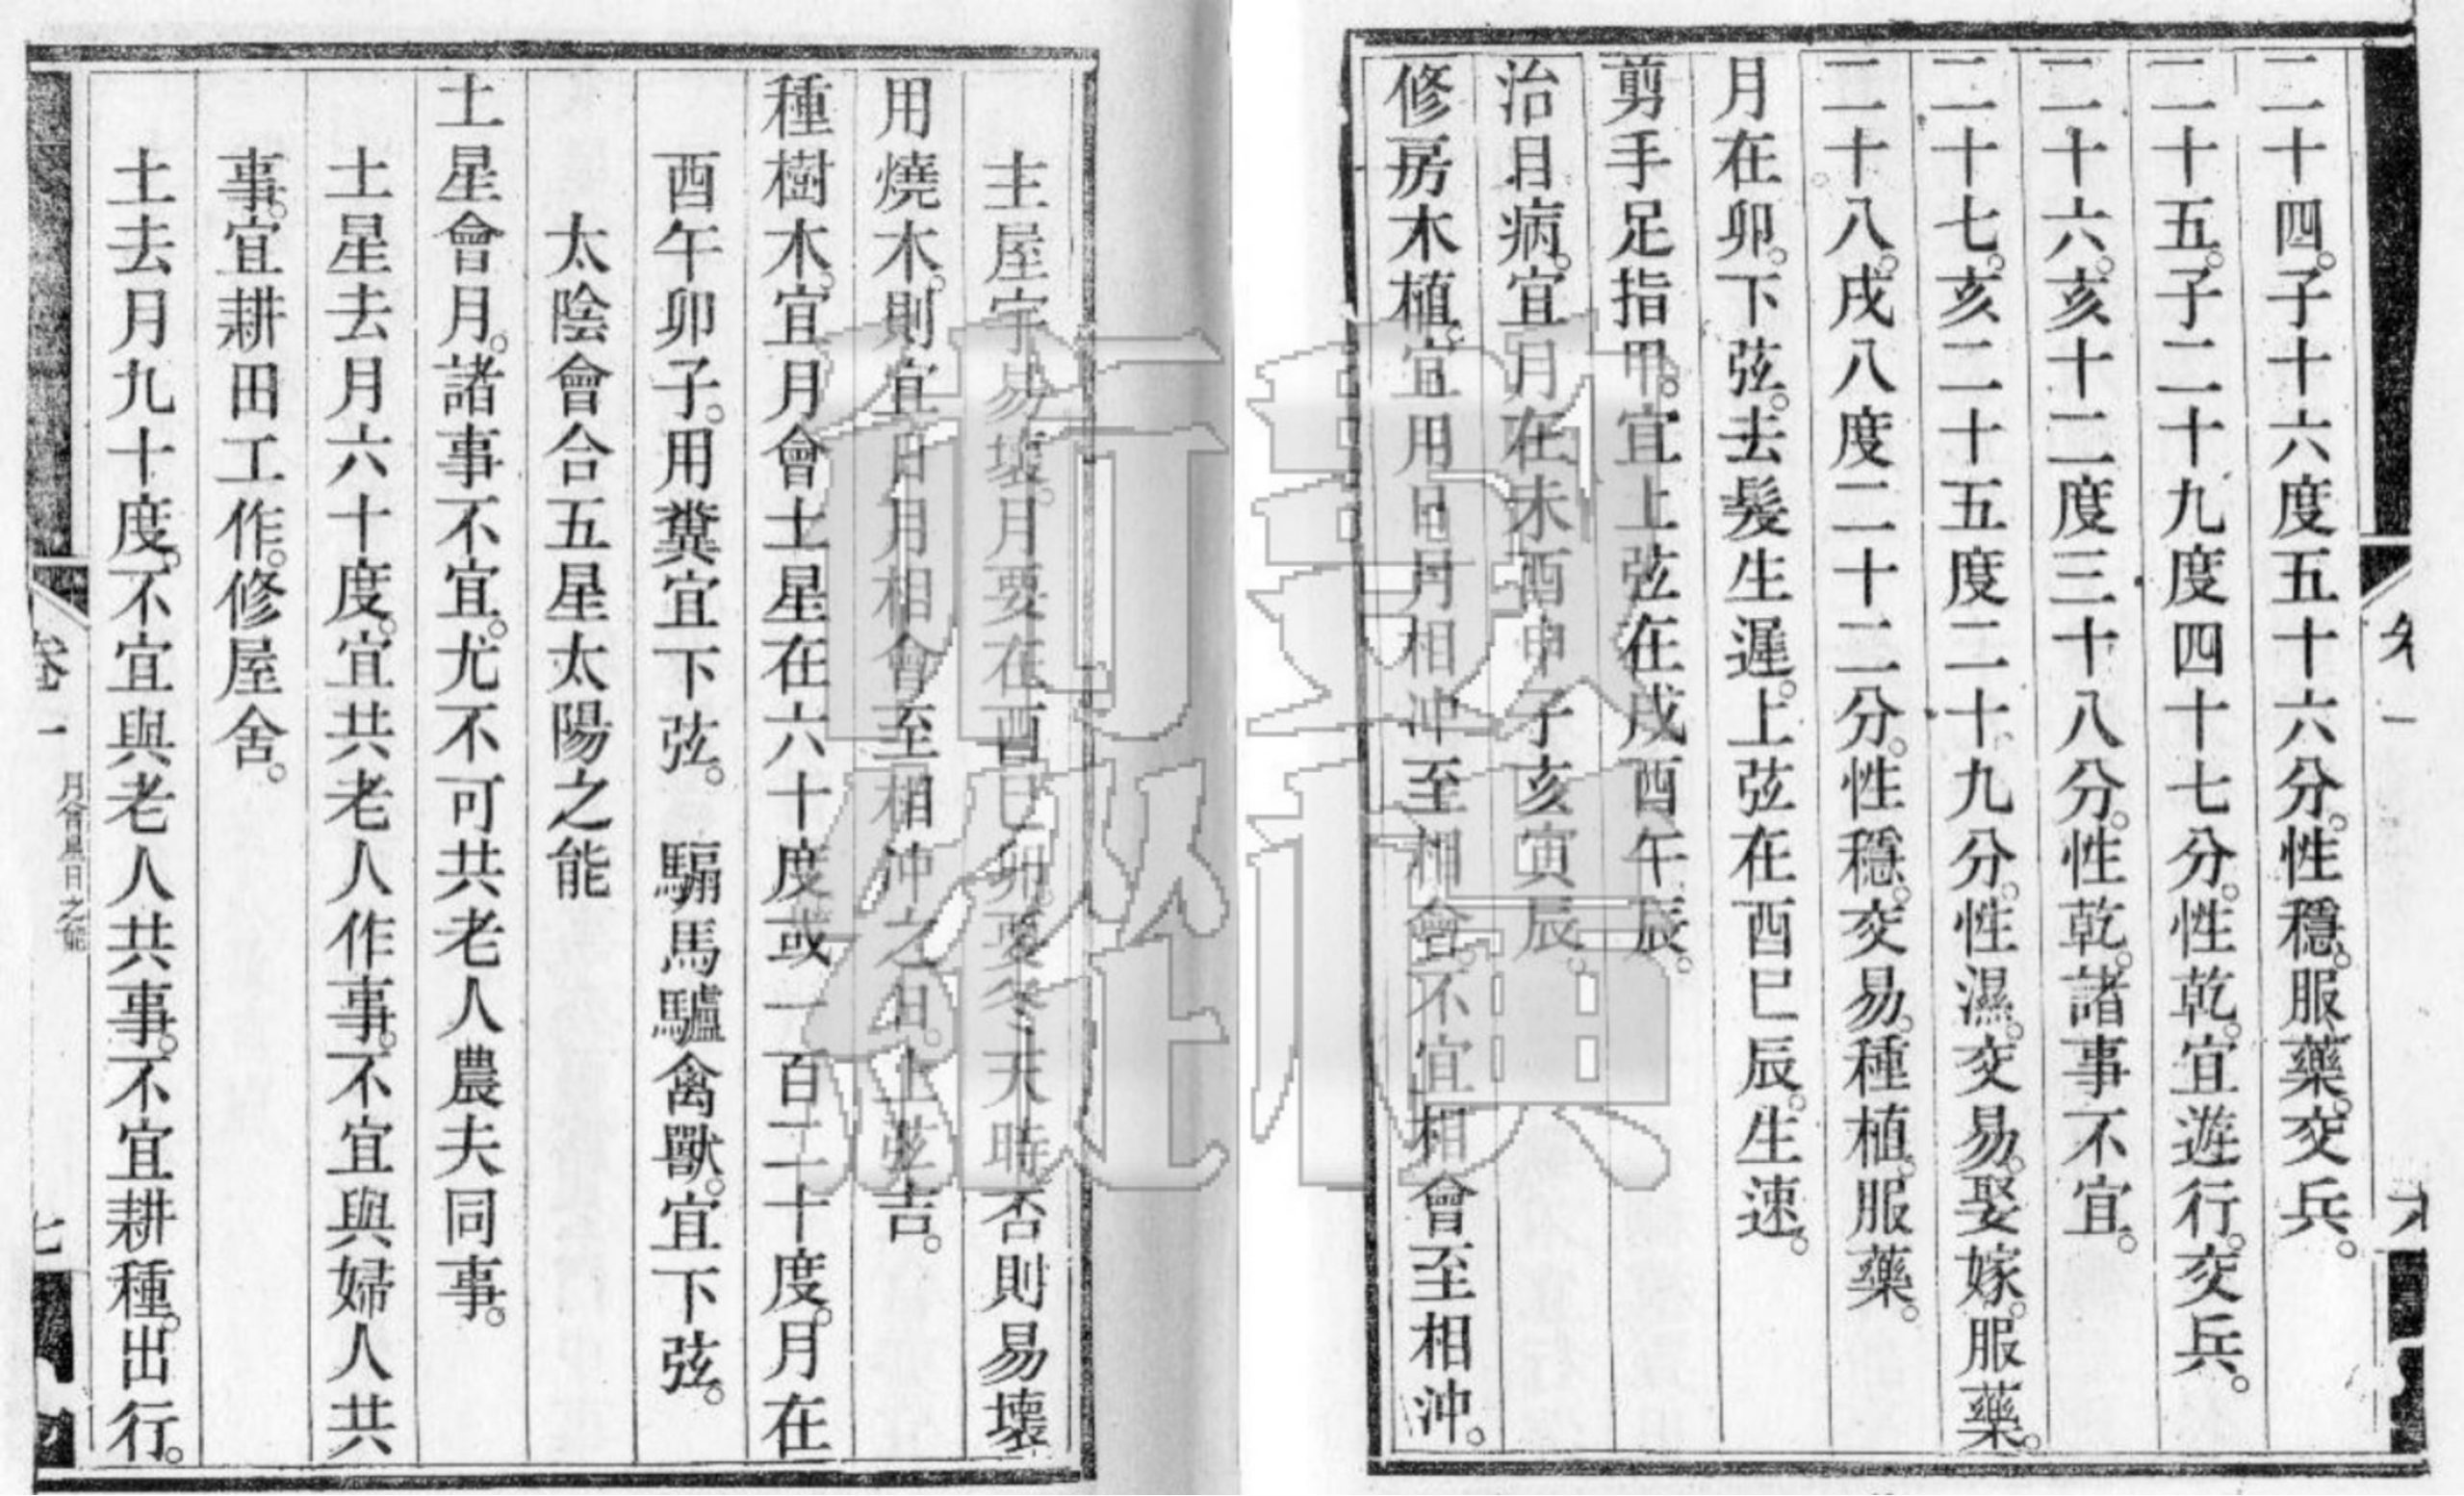 二十四。子十六度五十六分。性穩。服藥。交兵。
二十五。子二十九度四十七分。性乾。宜遊行。交兵。
二十六。亥十二度三十八分。性乾。諸事不宜。
二十七。亥二十五度二十九分。性濕。交易。娶嫁。服藥。
二十八。戌八度二十二分。性穩。交易。種植。服藥。
月在卯。下弦。去髮生遲。上弦在酉巳辰。生速。
剪手足指甲。宜上弦在戌酉午辰。
治目病。宜月在未酉申子亥寅辰。
修房木植。宜用日月相沖至相會。不宜相會至相沖。
主屋宇易壞。月要在酉巳卯。要冬天時否則易壞
用燒木。則宜日月相會至相沖之日。上弦吉。
種樹木。宜月會土星在六十度或一百二十度。月在
酉午卯子。用糞宜下弦。 騸馬驢禽獸。宜下弦。
太陰會合五星太陽之能
土星會月。諸事不宜。尤不可共老人農夫同事。
土星去月六十度。宜共老人作事。不宜與婦人共
事。宜耕田工作。修屋舍。
土去月九十度。不宜與老人共事。不宜耕種。出行。
卷一 月會星日之能 七